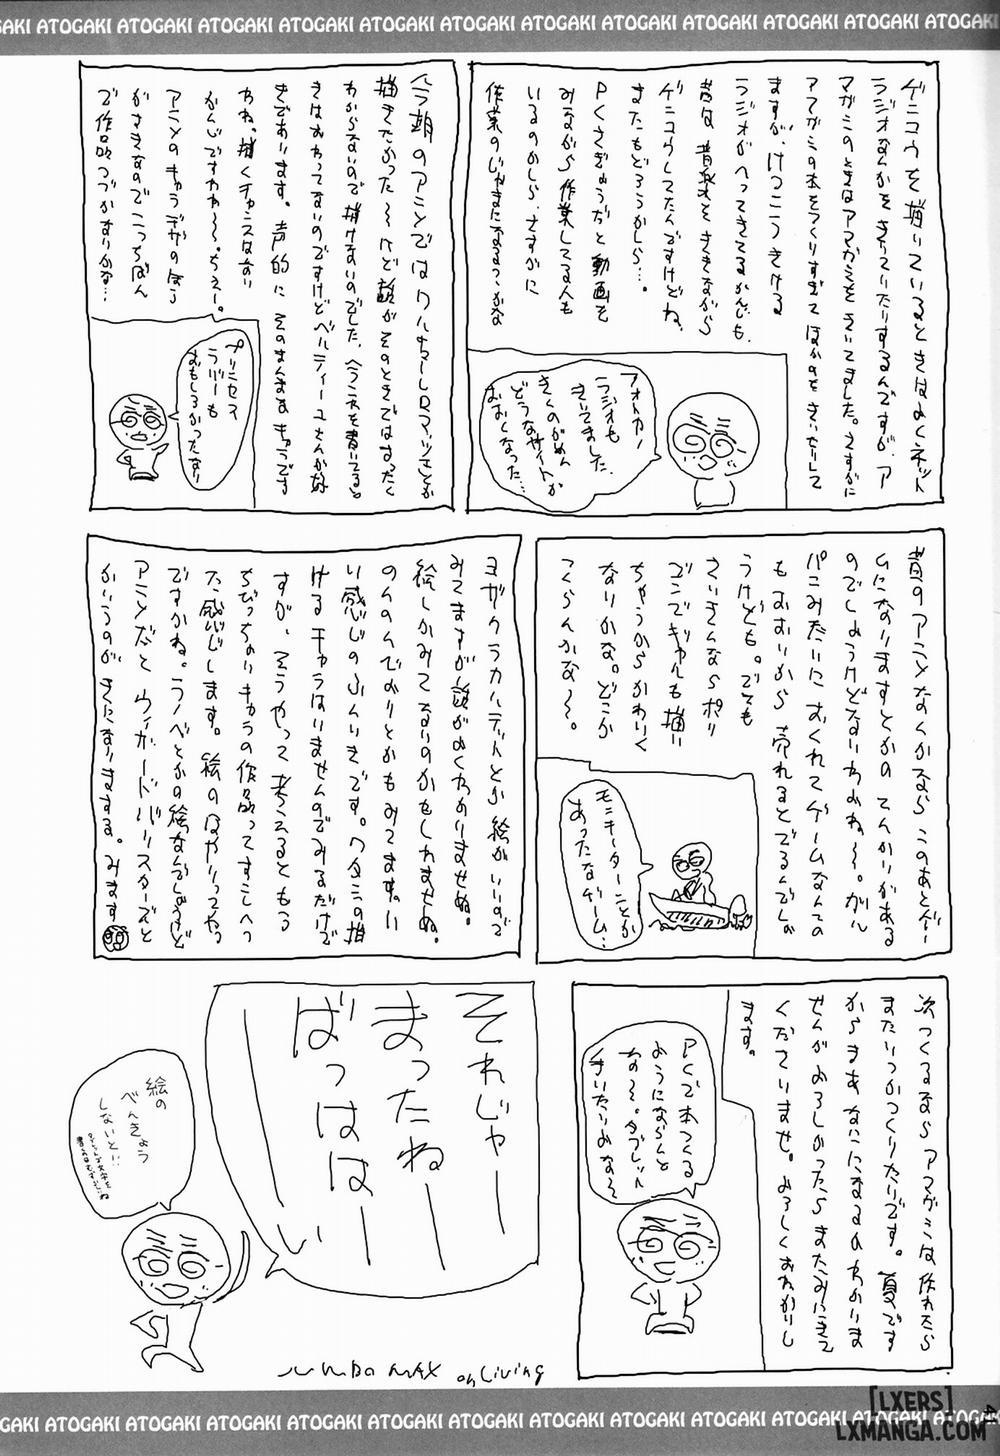 AKI ATOGAKI ATOGAKI ATOGAKI ATOGAKI ATOGAKI ATOGAKI ATOGAKI ATOGAKI ATOGAKI ATOGAKI ATOGAKI ATOGAKI
ゲンコウを描いているときはよくネット
ラジオなんかをきいていたりするんですが、ア
マガミのときはアマガミをきいてました。さすがに
アマガミの本をつくりすぎてほかのをきいたりして
ますが、けっこうきける
ラジオがへってきてるかんじも、
昔は音楽をききながら
ゲンコウしてたんですけどね、
またもどろうかしら…。
PCさぎょうだと動画を
みながら作業してる人も
いるのかしら、さすがに
作業のじゃまになるっつかな
フォトカノ
ラジオも
きいてました、
きくのがめん
どうなサイトが
おおくなった…
わからないので描けないのでした、
きであります。声的にそのまんまなキャラです
わね。描くチャンスはない
かんじですわね〜。ちぇー。
アニメのキャラデザのほう
がすきなのでこっちばん
で作品つづかないかな…
プリンセス
ラバーも
おもしろかったなぁ
昔のアニメなんかなら このあとゲー
ムになりますとかの てんかいがある
のでしょうけどないわよね〜。ガル
パンみたいにおくれてゲームなんての
もおもいから 売れるとでるんでしょ
うけども。でても
さいきんなら ポリ
ゴンでギャルも描い
ちゃうからかわいく
ないかな。どこか
つくらんかな〜。
モンキーターンとか
あったなゲーム…
ヨガクラカルテットとか 絵がいいので
みてますが 話がよくわかりませぬ。
絵しかみてないのかもしれませぬ。
のんのんびよりとかもみてます。い
い感じのふんいきです。ワタシの描
けるキャラはいませんのでみるだけで
すが、そうやって考えるともう
ちびっちゃいキャラの作品ってすこしへっ
た感じします。絵のはやりってやつ
ですかね。ラノベとかの絵なんでしょうけど
アニメだと ウィザードバリスターズと
かいうのが きになりまする。みます
次つくるなら アマガミは 作れたら
またいつかつくりたいです。夏です
からまあ なにになるかわかりま
せんがよろしかったら またみにきて
くださいませ。よろしくおねがいし
ます。
PCで本つくる
ようにならんと
な〜。タブレット
それじゃー
まったねー
ばっはは
ーい
絵の
べんきょう
しないと!!
JUMBO MAX
on Living
GAKI ATOGAKI ATOGAKI ATOGAKI ATOGAKI ATOGAKI ATOGAKI ATOGAKI ATOGAKI ATOGAKI ATOGAKI ATOGAKI
41
[LXERS]
LXMANGA.COM